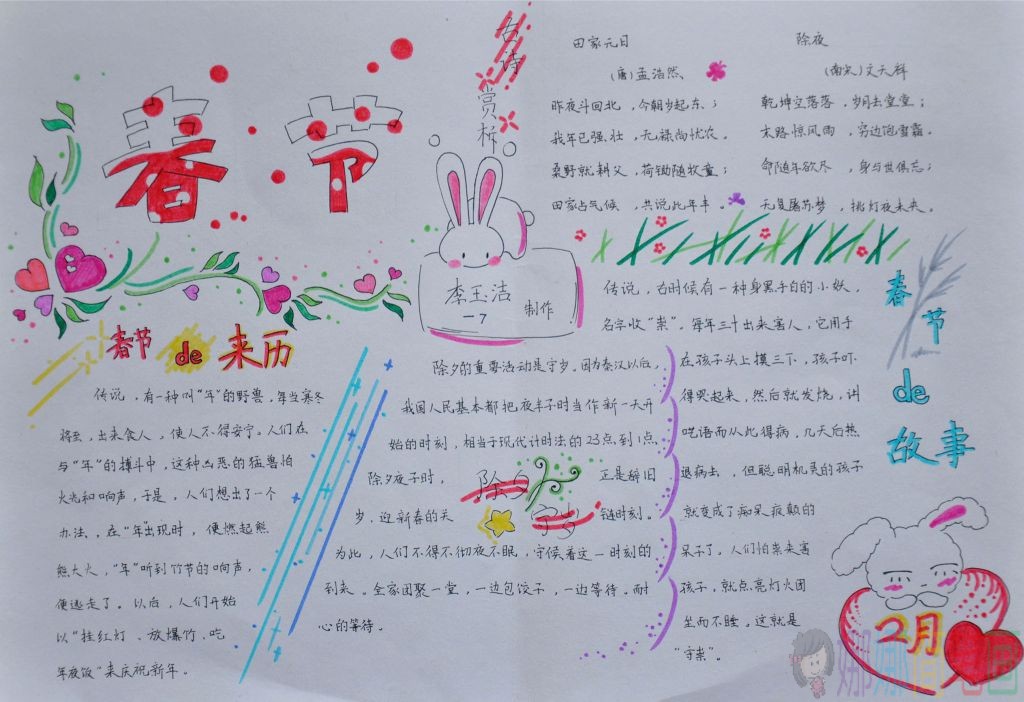 春节
古诗赏析
田家元日
(唐)孟浩然
昨夜斗回北，今朝岁起东；
我年已强壮，无禄尚忧农。
桑野就耕父，荷锄随牧童；
田家占气候，共说此年丰。
除夜
(南宋)文天祥
乾坤空落落，岁月去堂堂；
末路惊风雨，穷边饱雪霜。
命随年欲尽，身与世俱忘；
无复屠苏梦，挑灯夜未央。
李玉洁
一7
制作
春节de来历
传说，有一种叫“年”的野兽，每当寒冬
将至，出来食人，使人不得安宁。人们在
与“年”的搏斗中，这种凶恶的猛兽怕
火光和响声，于是，人们想出了一个
办法，在“年”出现时，便燃起熊
熊大火，“年”听到竹节的响声，
便逃走了。以后，人们开始
以“挂红灯、放爆竹、吃
年夜饭”来庆祝新年。
除夕守岁
除夕的重要活动是守岁。因为秦汉以后，
我国人民基本都把夜半子时当作新一天开
始的时刻，相当于现代计时法的23点到1点，
除夕夜子时，正是辞旧
岁、迎新春的关链时刻。
为此，人们不得不彻夜不眠，守候着这一时刻的
到来。全家团聚一堂，一边包饺子，一边等待。耐
心的等待。
春节de故事
传说，古时候有一种身黑手白的小妖，
名字收“祟”。每年三十出来害人，它用手
在孩子头上摸三下，孩子吓
得哭起来，然后就发烧，讲
呓语而从此得病，几天后热
退病去，但聪明机灵的孩子
就变成了痴呆疯颠的
呆子了。人们怕祟来害
孩子，就点亮灯火团
坐而不睡。这就是
“守祟”。
2月